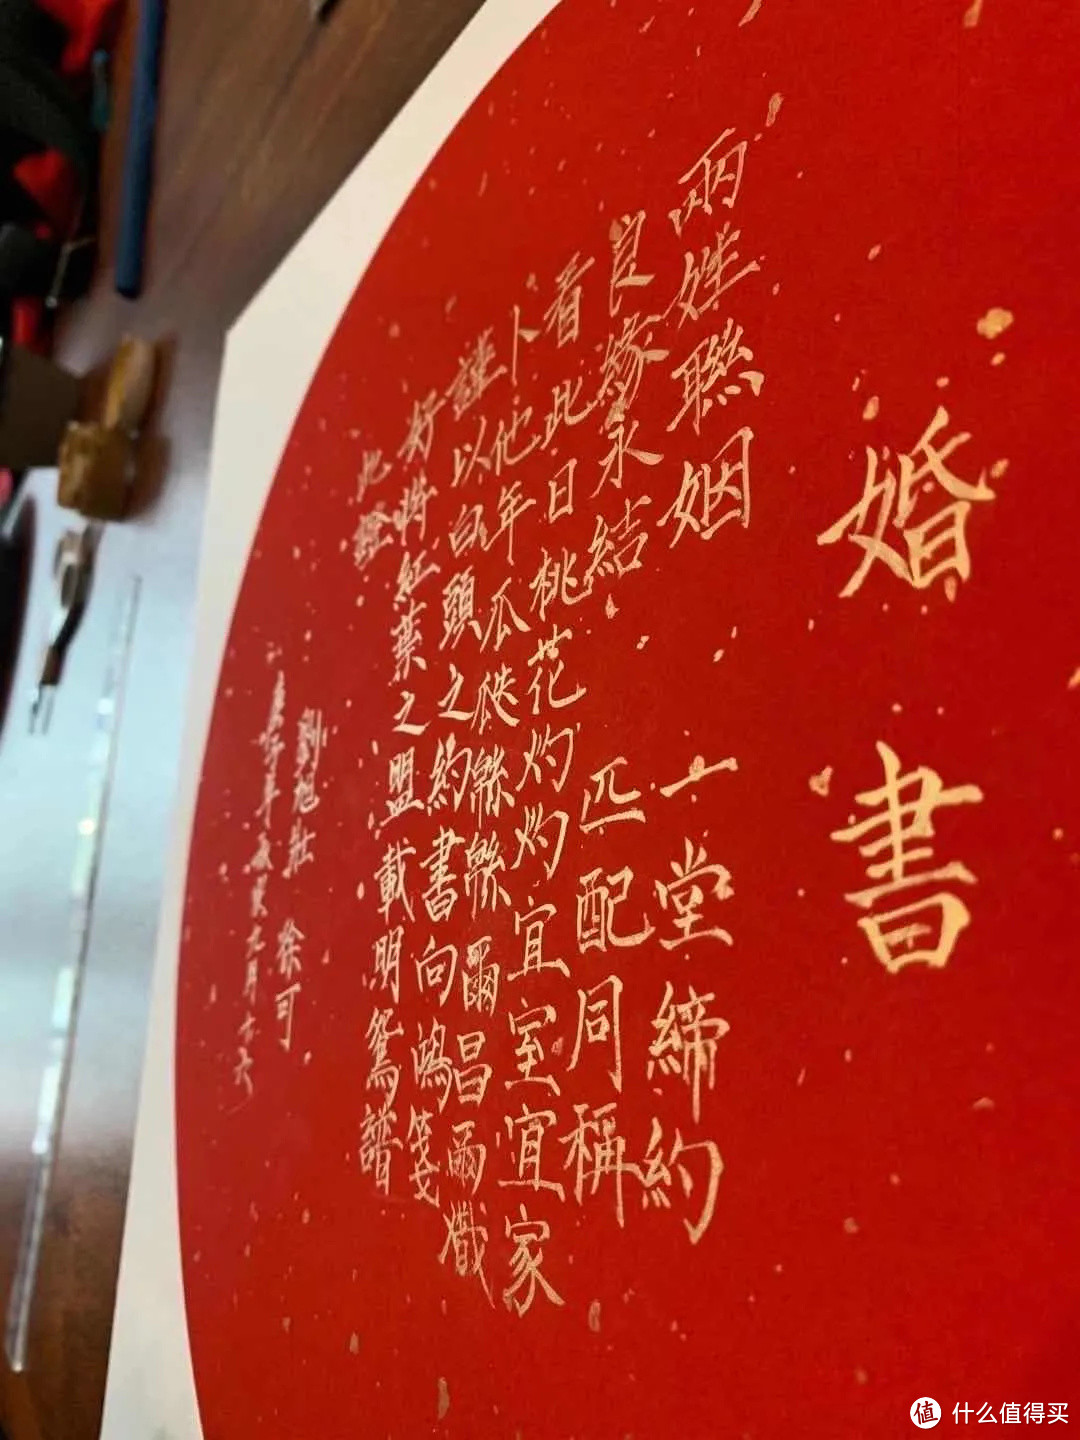 婚書
兩姓聯姻 一堂締約
良緣永結 匹配同稱
看此日桃花灼灼宜室宜家
卜他年瓜瓞緜緜爾昌爾熾
謹以白頭之約書向鴻箋
好將紅葉之盟載明鴛譜
此證
劉旭壯 徐可
庚子年 九月十六
值 什么值得买